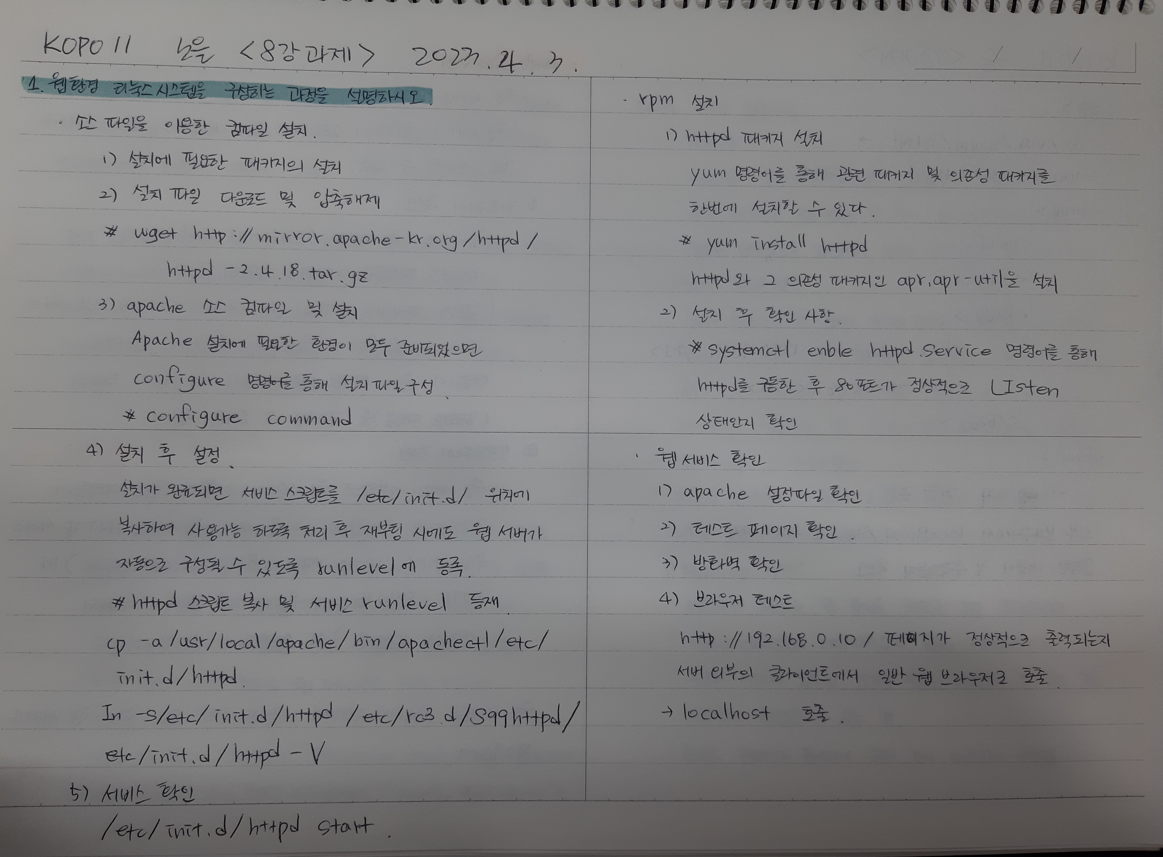 KOPO 11 노을 <8강과제> 2023.4.3.
1. 웹환경 리눅스시스템을 구성하는 과정을 설명하시오.
· 소스 파일을 이용한 컴파일 설치.
1) 설치에 필요한 패키지의 설치
2) 설치 파일 다운로드 및 압축해제
# wget http://mirror.apache-kr.org/httpd/
httpd-2.4.18.tar.gz
3) apache 소스 컴파일 및 설치
Apache 설치에 필요한 환경이 모두 준비되었으면
configure 명령어를 통해 설치파일 구성.
# configure command
4) 설치 후 설정.
설치가 완료되면 서비스 스크립트를 /etc/init.d/ 위치에
복사하여 사용가능 하도록 처리 후 재부팅 시에도 웹 서버가
자동으로 구성될 수 있도록 runlevel에 등록.
# httpd 스크립트 복사 및 서비스 runlevel 등재
cp -a/usr/local/apache/bin/apachectl/etc/
init.d/httpd.
In -s/etc/init.d/httpd /etc/rc3.d/S99httpd/
etc/init.d/httpd -V
5) 서비스 확인
/etc/init.d/httpd start.
· rpm 설치
1) httpd 패키지 설치
yum 명령어를 통해 관련 패키지 및 의존성 패키지를
한번에 설치할 수 있다.
# yum install httpd
httpd와 그 의존성 패키지인 apr,apr-util을 설치
2) 설치 후 확인 사항.
# systemctl enble httpd.service 명령어를 통해
httpd를 구동한 후 80포트가 정상적으로 LIsten
상태인지 확인
· 웹 서비스 확인
1) apache 설정파일 확인
2) 테스트 페이지 확인.
3) 방화벽 확인
4) 브라우저 테스트
http://192.168.0.10/ 페이지가 정상적으로 출력되는지
서버 외부의 클라이언트에서 일반 웹 브라우저로 호출.
→ localhost 호출.